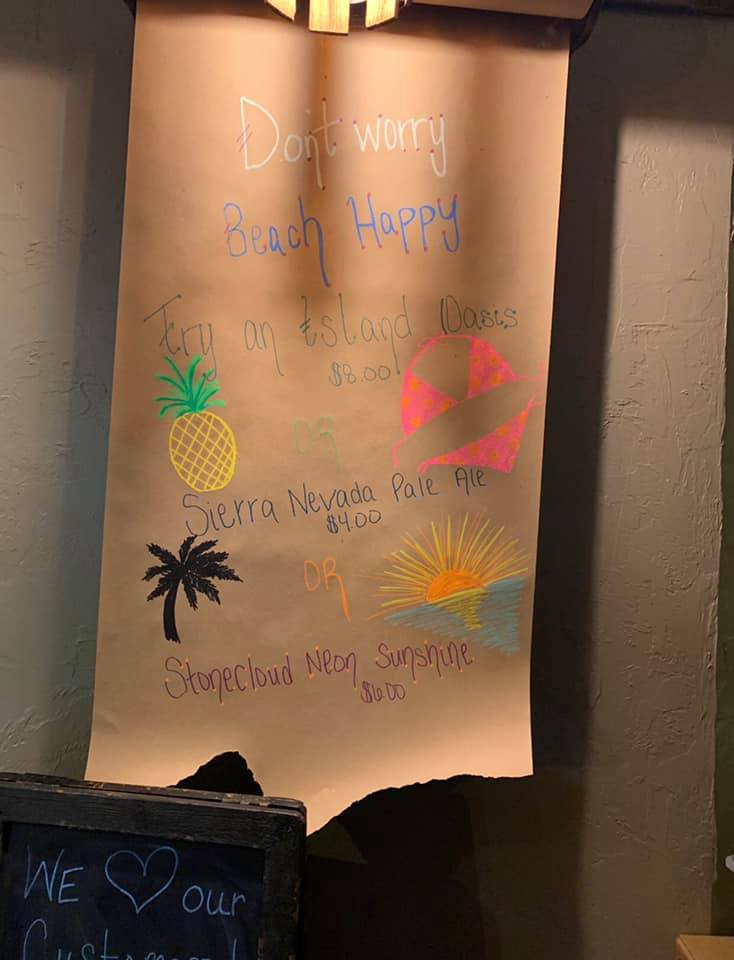 Don't worry
Beach Happy
Try an Island Oasis
$8.00
OR
Sierra Nevada Pale Ale
$4.00
OR
Stonecloud Neon Sunshine
$6.00
WE ♡ our
Customers!